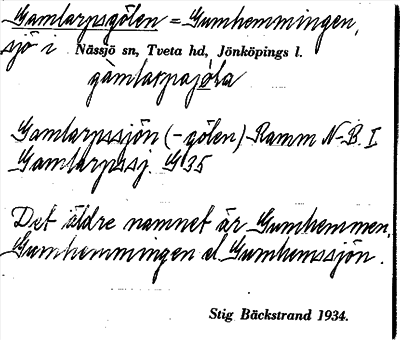 Gamlarpsgölen = Gumhemmingen,
sjö i Nässjö sn, Tveta hd, Jönköpings l.
gàmlarpajǿla
Gamlarpssjön (-gölen) Ramm N-B. I
Gamlarpssj. G 35
Det äldre namnet är Gumhemmen,
Gumhemmingen el Gumhemssjön.
Stig Bäckstrand 1934.